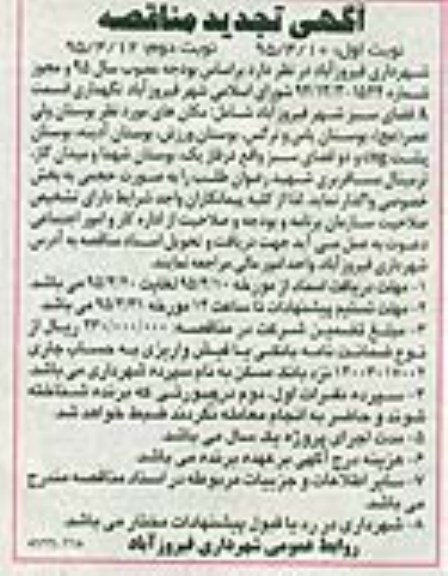 آگهی تجدید مناقصه
نوبت اول: ۹۵/۳/۱۰ نوبت دوم: ۹۵/۳/۱۷
شهرداری فیروزآباد در نظر دارد براساس بودجه مصوب سال ۹۵ و مجوز
شماره شورای اسلامی شهر فیروزآباد نگهداری قسمت
فضای سبز شهر فیروزآباد شامل: مکان های مورد نظر بوستان ولی
عصر(عج)، بوستان یاس و نرگس، بوستان ورزش، بوستان آدینه، بوستان
پشت cng و دو فضای سبز واقع در فاز یک، بوستان شهدا و میدان گاز،
ترمینال مسافربری شهید رضوان طلب را به صورت حجمی به بخش
خصوصی واگذار نماید. لذا از کلیه پیمانکاران واجد شرایط دارای تشخیص
صلاحیت سازمان برنامه و بودجه و صلاحیت از اداره کار و امور اجتماعی
دعوت به عمل می آید جهت دریافت و تحویل اسناد مناقصه به آدرس
شهرداری فیروزآباد، واحد امور مالی مراجعه نمایند.
۱- مهلت دریافت اسناد از مورخه ۹۵/۳/۱۰ لغایت ۹۵/۳/۲۰ می باشد.
۲- مهلت تسلیم پیشنهادات تا ساعت ۱۴ مورخه ۹۵/۳/۳۱ می باشد.
۳- مبلغ تضمین شرکت در مناقصه: ۲۳۰/۰۰۰/۰۰۰ ریال از
نوع ضمانت نامه بانکی یا فیش واریزی به حساب جاری
نزد بانک مسکن به نام سپرده شهرداری می باشد.
۴- سپرده نفرات اول، دوم درصورتی که برنده شناخته
شوند و حاضر به انجام معامله نگردند ضبط خواهد شد.
۵- مدت اجرای پروژه یک سال می باشد.
۶- هزینه درج آگهی بر عهده برنده می باشد.
۷- سایر اطلاعات و جزییات مربوطه در اسناد مناقصه مندرج
می باشد.
۸- شهرداری در رد یا قبول پیشنهادات مختار می باشد.
روابط عمومی شهرداری فیروزآباد